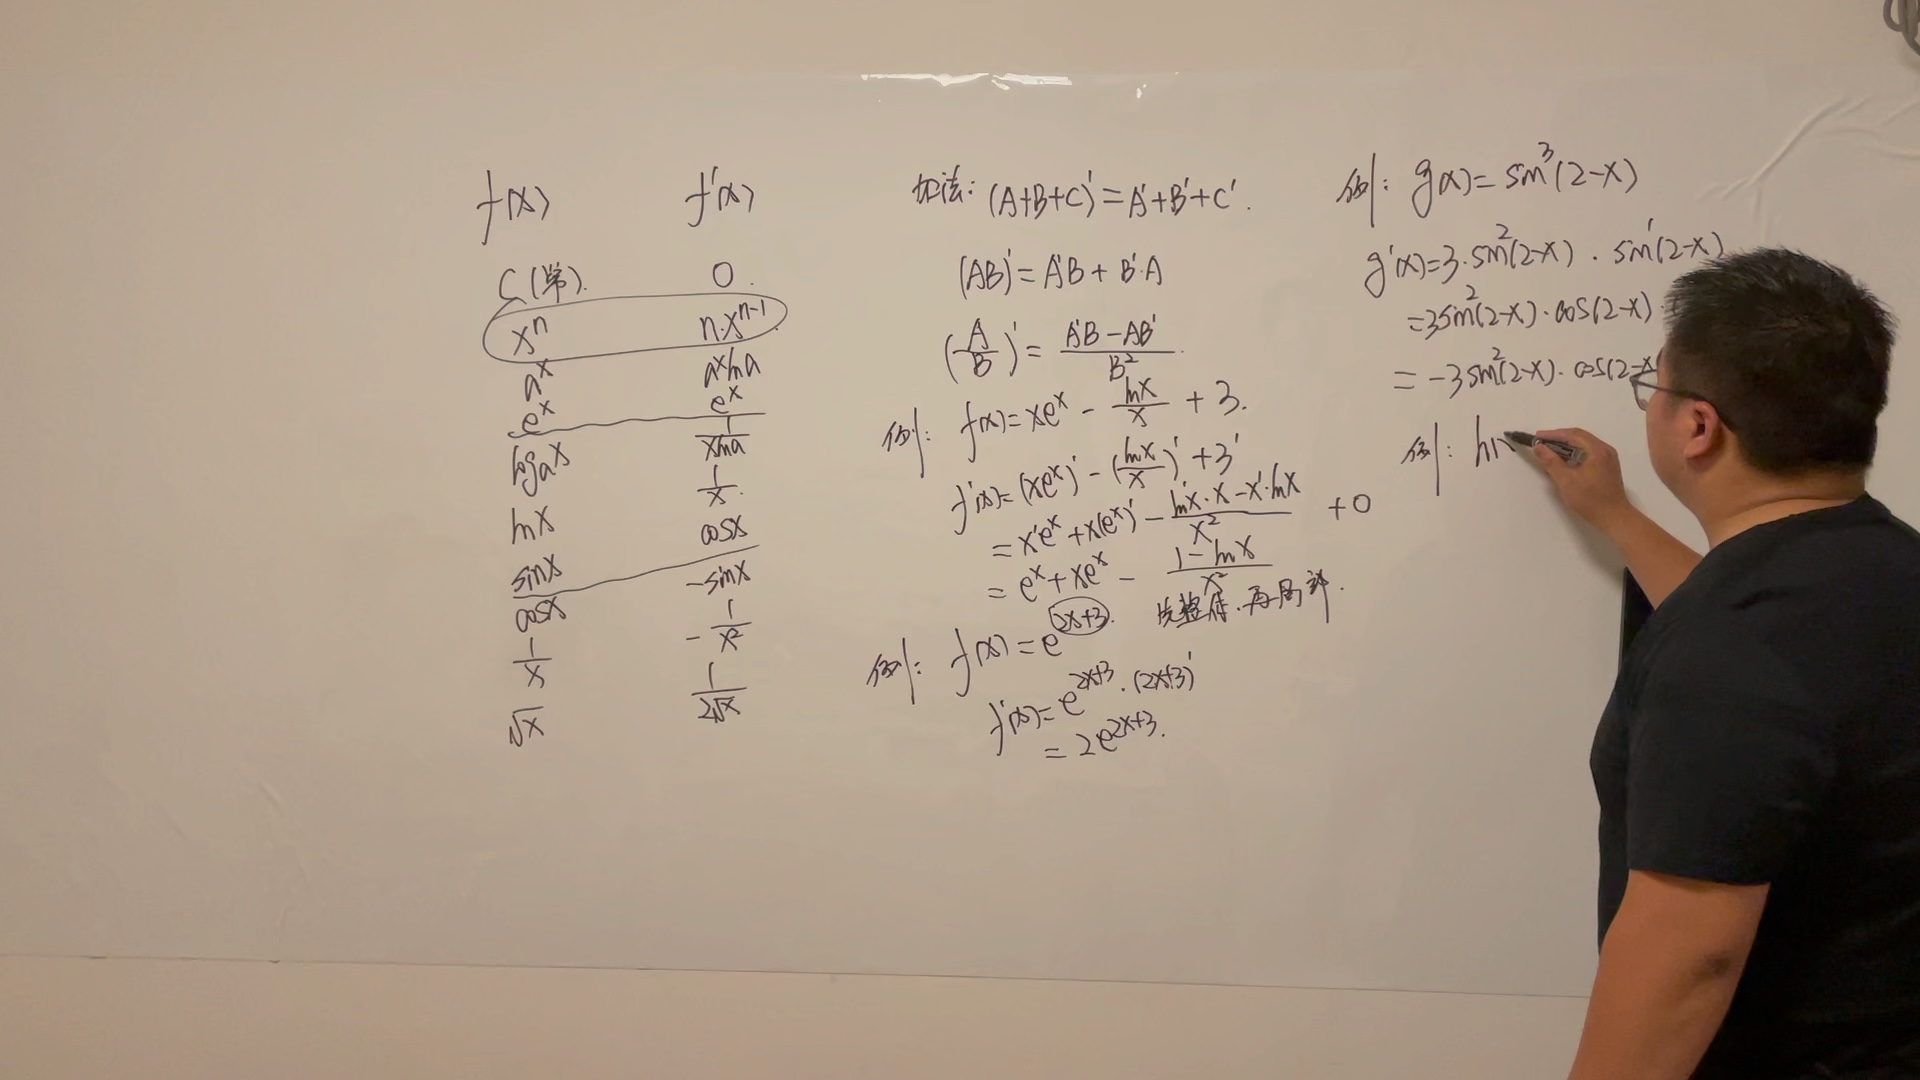 f(x) f'(x)
C(常). 0.
xⁿ n·xⁿ⁻¹
aˣ aˣlna
eˣ eˣ
logₐx 1/(xlna)
lnx 1/x.
sinx cosx
cosx -sinx
1/x -1/x²
√x 1/(2√x)
加法: (A+B+C)'=A'+B'+C'.
(AB)'=A'B+B'·A
(A/B)'=(A'B-AB')/B².
例: f(x)=xeˣ-lnx/x+3.
f'(x)=(xeˣ)'-(lnx/x)'+3'
=x'eˣ+x(eˣ)'-(ln'x·x-x'·lnx)/x²+0
=eˣ+xeˣ-(1-lnx)/x²
先整体.再局部.
例: f(x)=e^(2x+3).
f'(x)=e^(2x+3)·(2x+3)'
=2e^(2x+3).
例: g(x)=sin³(2-x)
g'(x)=3·sin²(2-x)·sin'(2-x)
=3sin²(2-x)·cos(2-x)·
=-3sin²(2-x)·cos(2-x
例: h